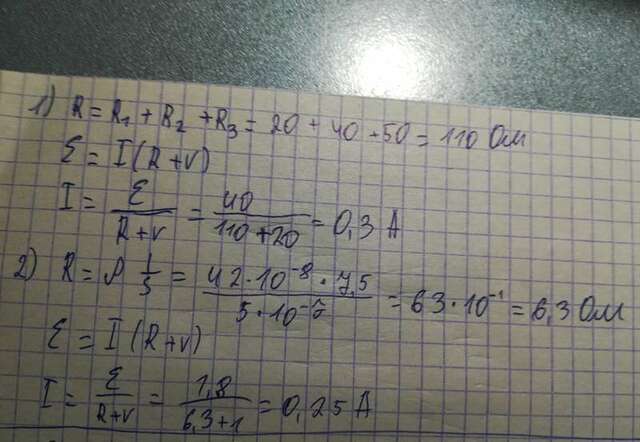 1) R = R₁ + R₂ + R₃ = 20 + 40 + 50 = 110 Ом
ε = I (R + r)
I = ε / (R + r) = 40 / (110 + 20) = 0,3 А
2) R = ρ l / S = 42 · 10⁻⁸ · 7,5 / 5 · 10⁻⁷ = 63 · 10⁻¹ = 6,3 Ом
ε = I (R + r)
I = ε / (R + r) = 1,8 / (6,3 + 1) = 0,25 А